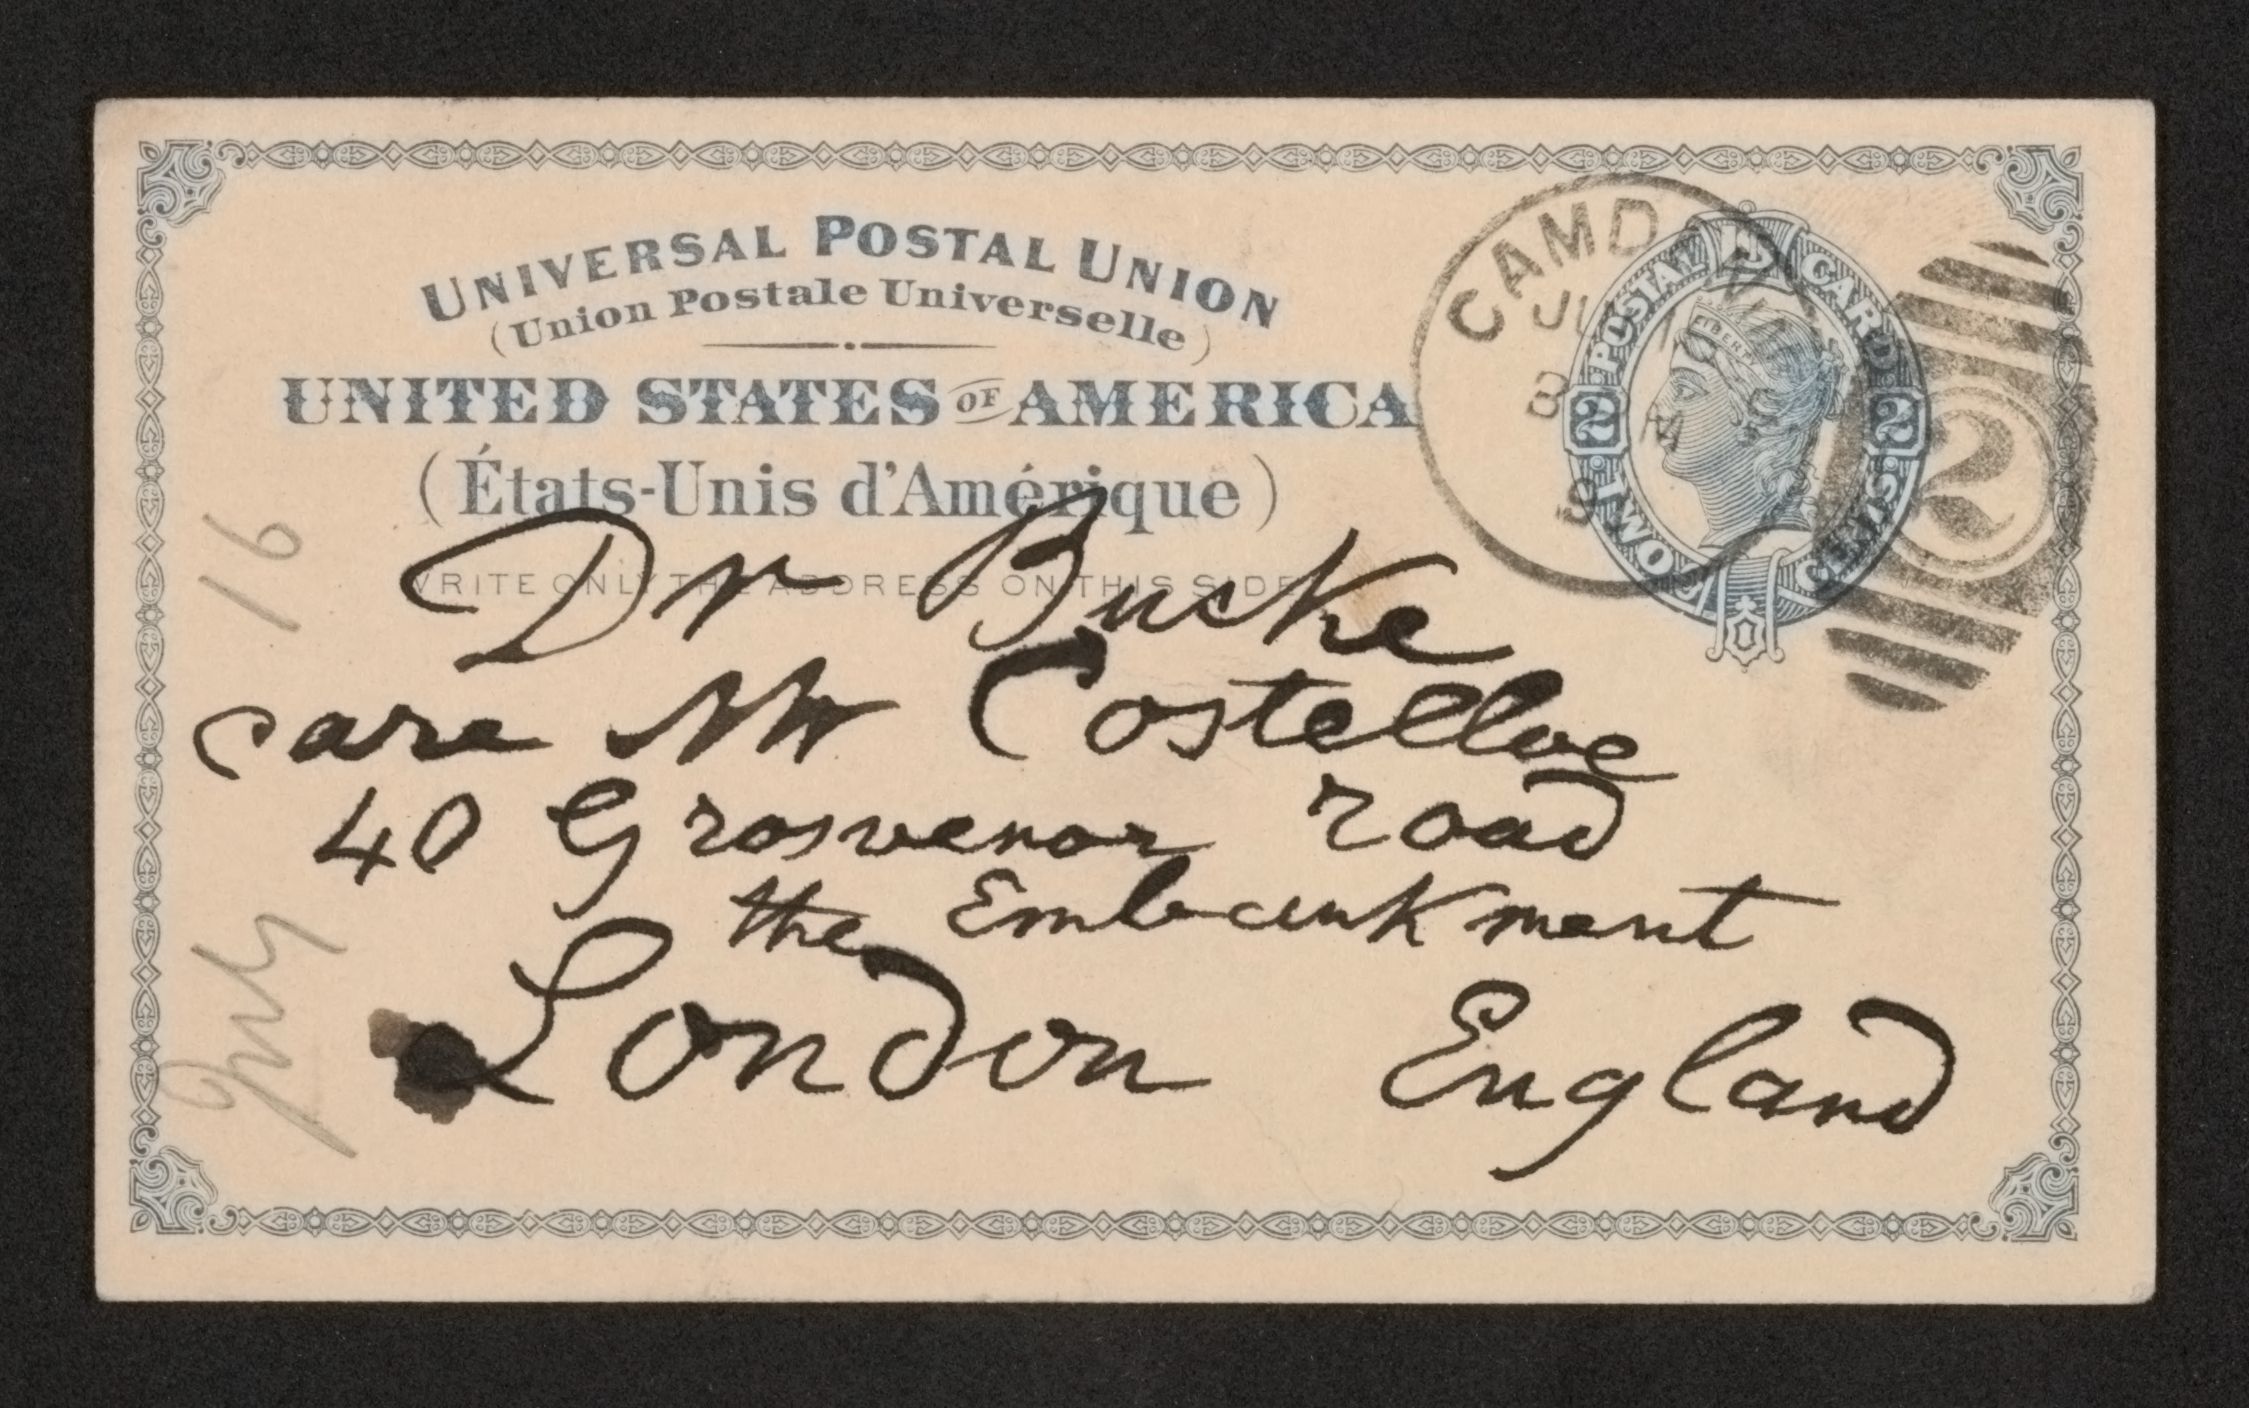 UNIVERSAL POSTAL UNION
(Union Postale Universelle)
UNITED STATES OF AMERICA
(États-Unis d'Amérique)
WRITE ONLY THE ADDRESS ON THIS SIDE
U.S. POSTAL CARD
LIBERTY
2 2
TWO CENTS
CAMD
JUL 16
8 M
2
Dr Bucke
care Mr Costelloe
40 Grosvenor road
the Embankment
London England
July 16